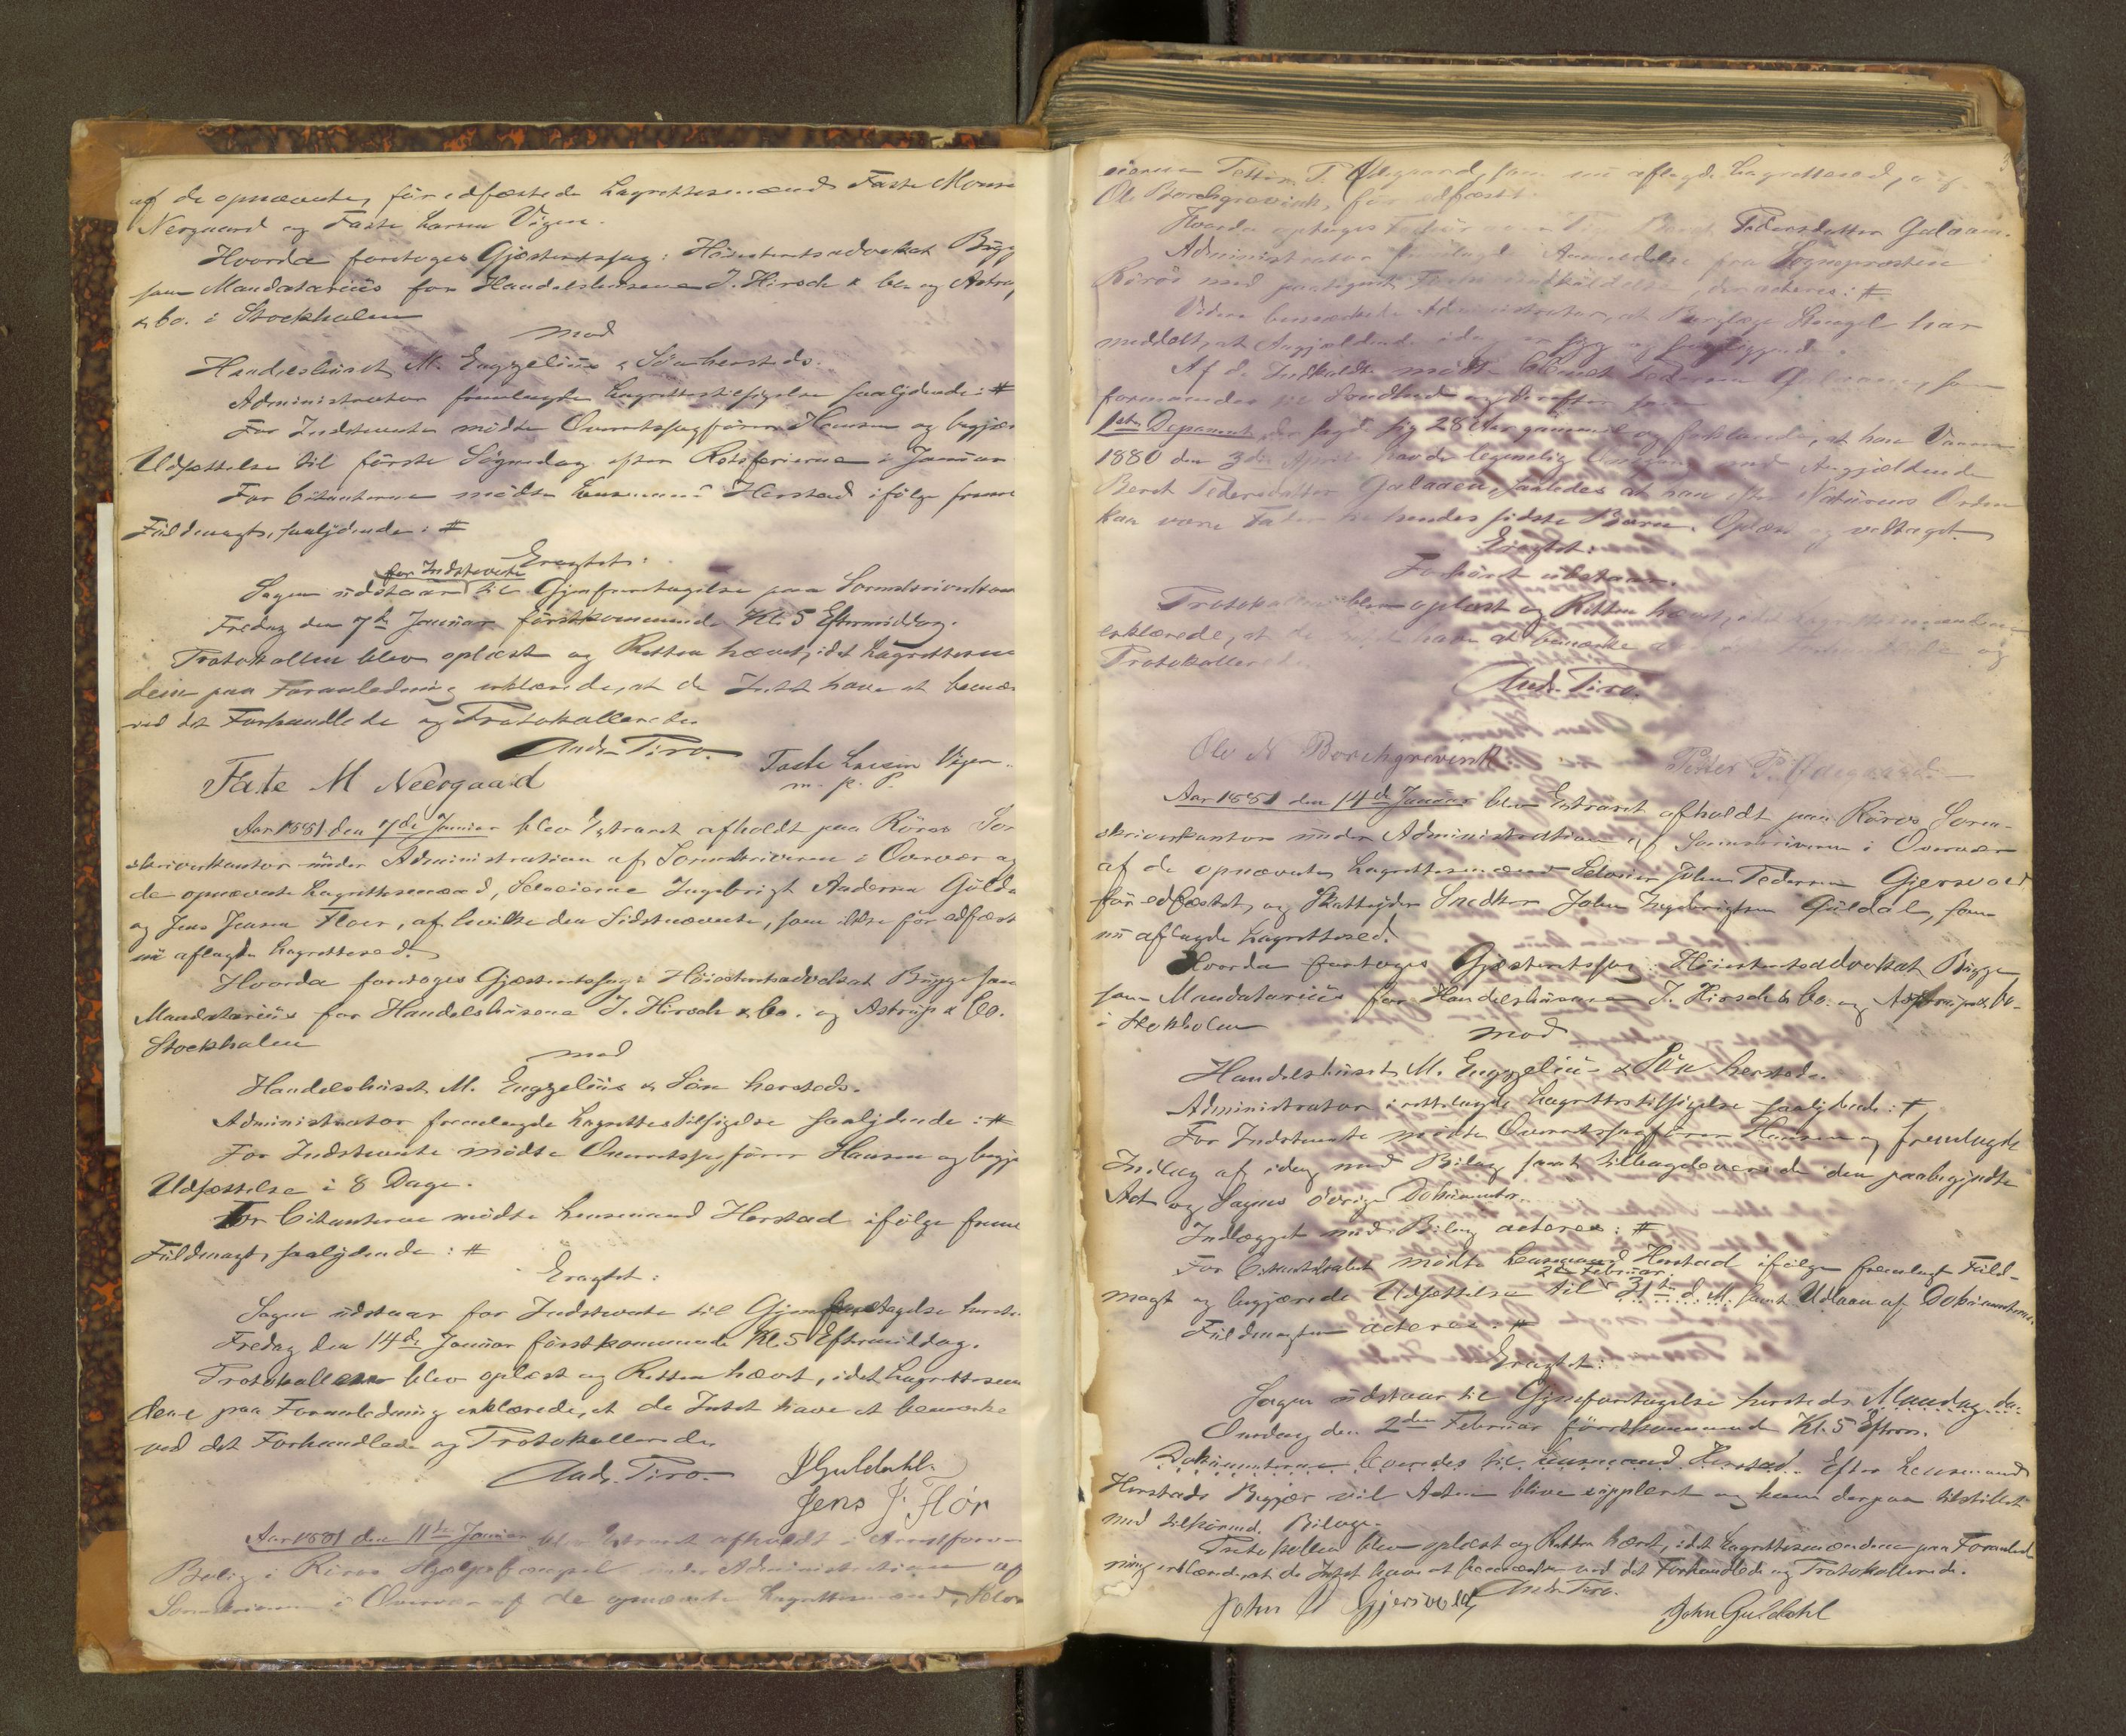 af de opnævnte, før edfæstede Lagrettesmænd Faste Mons
Neergaard og Faste Larsen Vigen.
Hvorda foretoges Gjæsteretssag: Høiesteretsadvokat Bugg
som Mandatarius for Handelshusene J. Hirsch & Co. og Astrup
& Co. i Stockholm
mod
Handelshuset M. Engzelius & Søn hersteds.
Administrator fremlagde Lagrettestilsigelse saalydende: #
For Indstevnte mødte Overretssagfører Hansen og begjær
Udsættelse til første Søgnedag efter Retsferierne i Januar
For Citanterne mødte Lensmand Herstad ifølge freml
Fuldmagt, saalydende: #
Eragtet:
for Indstevnte
Sagen udstaar til Gjenforetagelse paa Sorenskriverkon
Fredag den 7de Januar førstkommende Kl. 5 Eftermiddag.
Protokollen blev oplæst og Retten hævet, idet Lagrettesmæn
dene paa Foranledning erklærede, at de Intet have at bemær
ved det Forhandlede og Protokollerede.
Andr. Tiro.
Faste Larsen Vigen
m. p. P.
Faste M Neergaard
Aar 1881 den 7de Januar blev Extraret afholdt paa Röros Sor
skriverkontor under Administration af Sorenskriveren i Overvær af
de opnævnte Lagrettesmænd, Selveierne Ingebrigt Andersen Gulda
og Jens Jensen Floer, af hvilke den Sidstnævnte, som ikke før edfæst
nu aflagde Lagrettesed.
Hvorda foretoges Gjæsteretssag: Höiesteretsadvokat Bugge som
Mandatarius for Handelshusene J. Hirsch & Co. og Astrup & Co.
Stockholm
mod
Handelshuset M. Engzelius & Søn hersteds.
Administrator fremlagde Lagrettestilsigelse saalydende: #
For Indstevnte mødte Overretssagfører Hansen og begjæ
Udsættelse i 8 Dage.
For Citanterne mødte Lensmand Herstad ifølge freml
Fuldmagt, saalydende: #
Eragtet:
Sagen udstaar for Indstevnte til Gjenforetagelse herste
Fredag den 14de Januar førstkommende Kl. 5 Eftermiddag.
Protokollen blev oplæst og Retten hævet, idet Lagrettesmæn
dene paa Foranledning erklærede, at de Intet have at bemærke
ved det Forhandlede og Protokollerede.
Andr. Tiro.
JGuldahl.
Jens J. Flór
Aar 1881 den 11te Januar blev Extraret afholdt i
Bolig i Röros under Administration af
Sorenskriveren i Overvær af de opnævnte Lagrettesmænd, Selv
eierne Petter P. Ødegaard, som nu aflagde Lagrettesed, og
Ole Borchgrevink, før edfæstet.
Hvorda Pedersdatter Galaaen.
Administrator fremlagde Anmeldelse fra Sognepræsten i
Rörös med paategnet acteres: #
Videre bemærkede Administrator, at Stengel har
meddelt, at Angjældende idag er syg og sengeliggende.
Af de Indkaldte mødte Pedersen Galaaen, som
formanedes til Sandhed og derefter som
1ste Deponent, der sagde sig 28 Aar gammel og forklarede, at han Vaaren
1880 den 3die April havde legemlig Omgang med Angjældende
Beret Pedersdatter Galaaen, saaledes at han efter Naturens Orden
kan være Fader til hendes sidste Barn. Oplæst og vedtaget.
Eragtet:
Forhøret udstaar.
Protokollen blev oplæst og Retten hævet, idet Lagrettesmændene
erklærede, at de Intet have at bemærke ved det Forhandlede og
Protokollerede.
Andr. Tiro.
Ole N Borchgrevink
Petter P. Ødegaard
Aar 1881 den 14de Januar blev Extraret afholdt paa Röros Soren-
skriverkontor under Administration af Sorenskriveren i Overvær
af de opnævnte Lagrettesmænd Selveier John Pedersen Gjersvold
før edfæstet, og Snedker John Ingebrigtsen Guldal, som
nu aflagde Lagrettesed.
Hvorda foretoges Gjæsteretssag: Höiesteretsadvokat Bugge
som Mandatarius for Handelshusene J. Hirsch & Co. og Astrup & Co.
i Stokholm
mod
Handelshuset M. Engzelius & Søn hersteds.
Administrator irettelagde Lagrettestilsigelse saalydende: #
For Indstevnte mødte Overretssagfører Hansen og fremlagde
Indlæg af idag med Bilag samt tilbageleverede den paabegyndte
Act og Sagens övrige Dokumenter.
Indlægget med Bilag acteres: #
For Citantskabet mødte Lensmand Herstad ifølge fremlagt Fuld-
2den Februar
magt og begjærede Udsættelse til 31te d. M. samt Udlaan af Dokumenterne.
Fuldmagten acteres: #
Eragtet:
Sagen udstaar til Gjenforetagelse hersteds Mandag den
Onsdag den 2den Februar førstkommende Kl. 5 Efterm.
Dokumenterne leveredes til Lensmand Herstad. Efter Lensmand
Herstads Begjær vil Acten blive suppleret og ham derpaa tilstillet
med tilhørende Bilage.
Protokollen blev oplæst og Retten hævet, idet Lagrettesmændene paa Foranled
ning erklærede, at de Intet have at bemærke ved det Forhandlede og Protokollerede.
Andr. Tiro.
John P Gjersvold
John Guldahl